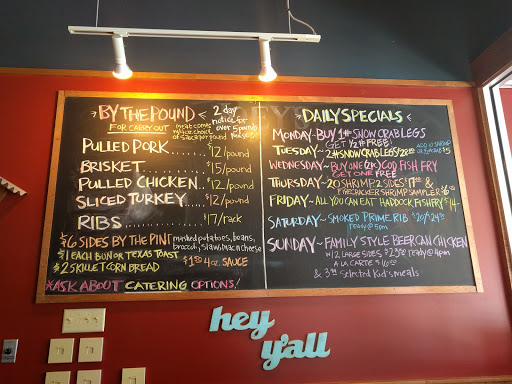 BY THE POUND
FOR CARRY OUT
2 day
notice for
over 5 pounds
please
meat comes
w/ choice
of sauce per pound
PULLED PORK $12/pound
BRISKET $15/pound
PULLED CHICKEN $12/pound
SLICED TURKEY $12/pound
RIBS $17/rack
$6 SIDES BY THE PINT mashed potatoes, beans,
broccoli, slaw, mac n cheese
$1 EACH BUN OR TEXAS TOAST
$2 SKILLET CORN BREAD
4oz. SAUCE
*ASK ABOUT CATERING OPTIONS!
DAILY SPECIALS
MONDAY~BUY 1# SNOW CRAB LEGS
GET 1/2# FREE!
TUESDAY~2# SNOW CRAB LEGS $28
ADD 10 SHRIMP
$5
WEDNESDAY~BUY ONE (2pc) COD FISH FRY
GET ONE FREE
THURSDAY~20 SHRIMP 2 SIDES $17 &
FIRECRACKER SHRIMP SAMPLER $6
FRIDAY~ALL YOU CAN EAT HADDOCK FISH FRY $14
SATURDAY~SMOKED PRIME RIB $20/$24
ready @ 5pm
SUNDAY~FAMILY STYLE BEER CAN CHICKEN
w/ 2 LARGE SIDES ready @ 4pm
A LA CARTE $16
& 3.99 Selected Kid's meals
hey
y'all